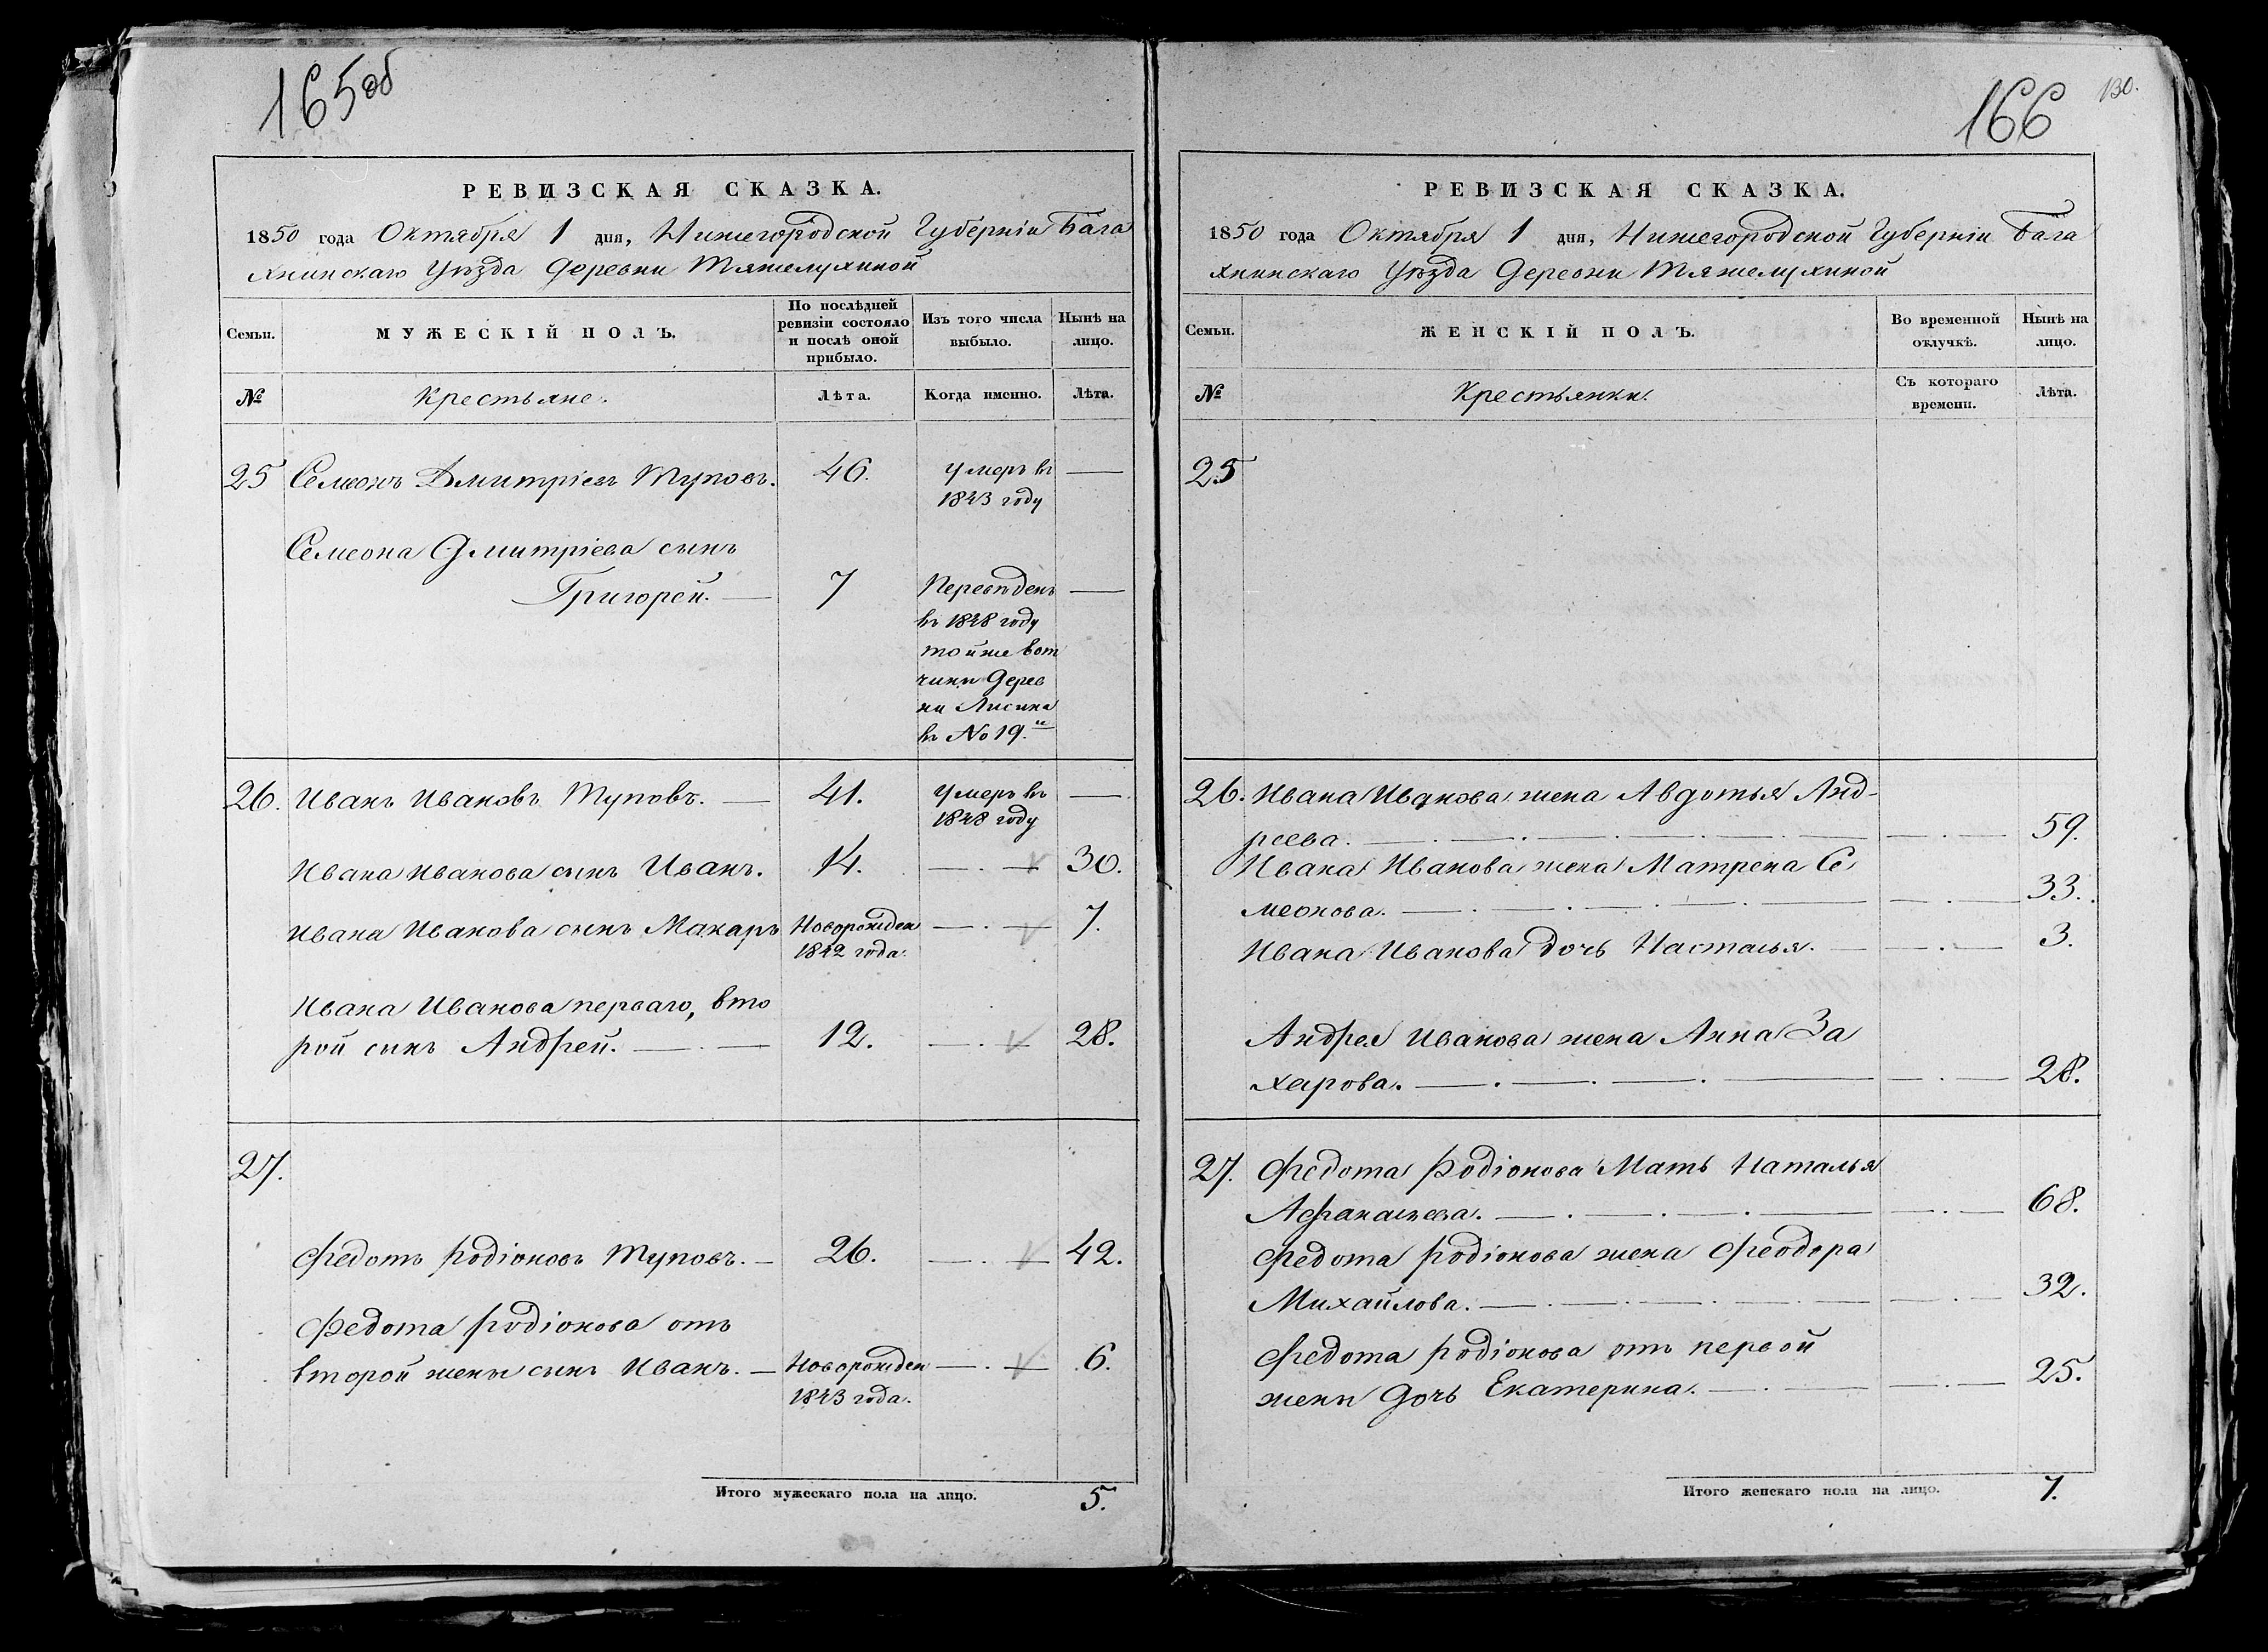 165об
РЕВИЗСКАЯ СКАЗКА.
1850 года Октября 1 дня, Нижегородской Губерніи Бала
хнинскаго Уѣзда Деревни Тяжелухиной
Семьи.
МУЖЕСКІЙ ПОЛЪ.
По послѣдней ревизіи состояло и послѣ оной прибыло.
Изъ того числа выбыло.
Нынѣ на лицо.
№
Крестьяне.
Лѣта.
Когда именно.
Лѣта.
25 Семенъ Дмитріевъ Туповъ. 46. умеръ въ —
1843 году
Семеона Дмитріева сынъ
Григорей. — 7 Переведенъ —
въ 1848 году
тойже вот
чины Дерев
ни Лисина
въ № 19.й
26. Иванъ Ивановъ Туповъ. — 41. умеръ въ —
1848 году
Ивана Иванова сынъ Иванъ. 14. — . — 30.
Ивана Иванова сынъ Макаръ Новорожден — . — 7.
1842 года.
Ивана Иванова перваго, вто
рой сынъ Андрей. — . — 12. — . — 28.
27.
Федотъ Родіоновъ Туповъ. — 26. — . — 42.
Федота Родіонова отъ
второй жены сынъ Иванъ. — Новорожден — . — 6.
1843 года.
Итого мужескаго пола на лицо. 5.
166
130.
РЕВИЗСКАЯ СКАЗКА.
1850 года Октября 1 дня, Нижегородской Губерніи Бала
хнинскаго Уѣзда Деревни Тяжелухиной
Семьи.
ЖЕНСКІЙ ПОЛЪ.
Во временной отлучкѣ.
Нынѣ на лицо.
№
Крестьянки.
Съ котораго времени.
Лѣта.
25
26. Ивана Иванова жена Авдотья Анд-
реева. 59.
Ивана Иванова жена Матрена Се
меонова. 33.
Ивана Иванова дочь Настасья. 3.
Андрея Иванова жена Анна За
харова. 28.
27. Федота Родіонова Мать Наталья
Афанасьева. 68.
Федота Родіонова жена Феодора
Михайлова. 32.
Федота Родіонова отъ первой
жены дочь Екатерина. 25.
Итого женскаго пола на лицо. 7.